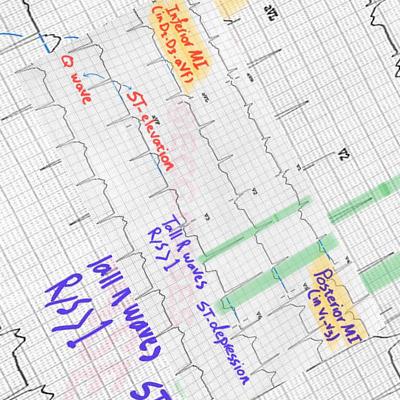 Inferior MI
(in D2, D3, aVF)
aVL
Q wave
ST-elevation
V2
Tall R waves
R/S>>1
ST-depression
Posterior MI
(in V1, V3)
Tall R waves
R/S>>1
ST